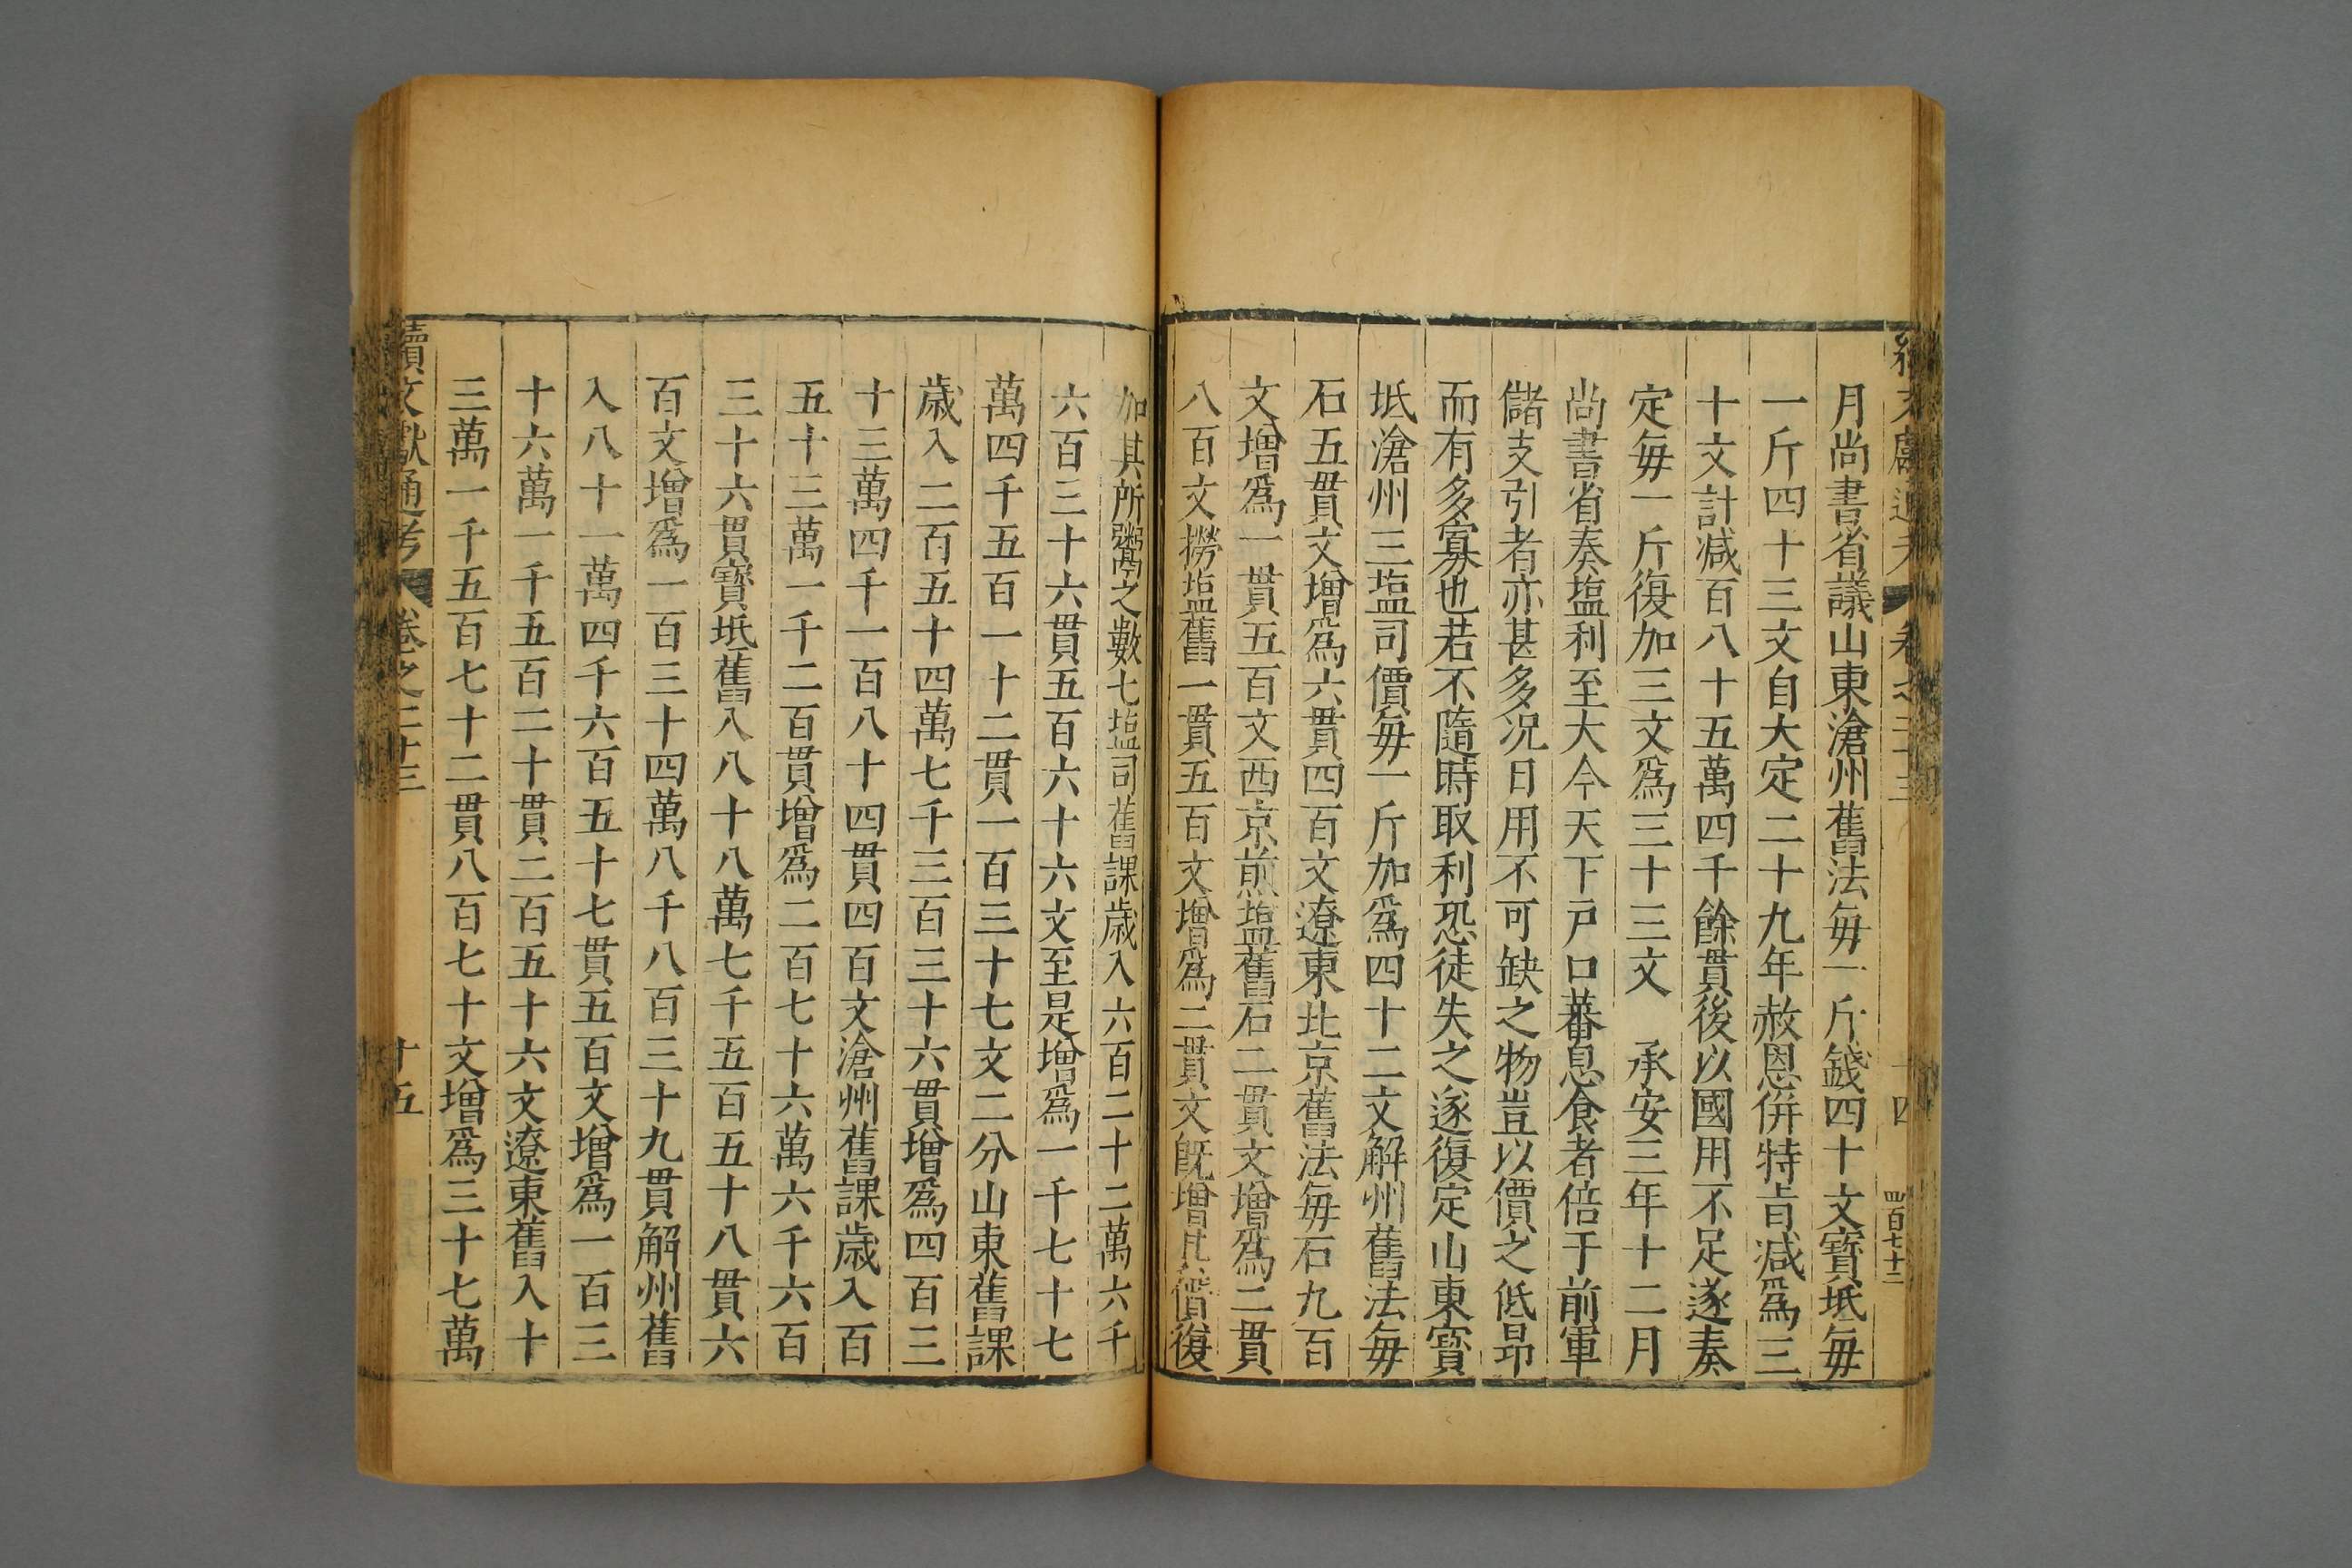 月尚書省議山東滄州舊法毎一斤錢四十文寳坻毎
一斤四十三文自大定二十九年赦恩併特㫖減爲三
十文計減百八十五萬四千餘貫後以國用不足遂奏
定毎一斤復加三文爲三十三文　承安三年十二月
尚書省奏塩利至大今天下戸口蕃息食者倍于前軍
儲支引者亦甚多况日用不可缺之物豈以價之低昻
而有多寡也若不隨時取利恐徒失之遂復定山東寳
坻滄州三塩司價毎一斤加爲四十二文解州舊法毎
石五貫文增爲六貫四百文遼東北京舊法毎石九百
文增爲一貫五百文西京煎塩舊石二貫文增爲二貫
八百文撈塩舊一貫五百文增爲二貫文旣增其價復
加其所鬻之數七塩司舊課歲入六百二十二萬六千
六百三十六貫五百六十六文至是增爲一千七十七
萬四千五百一十二貫一百三十七文二分山東舊課
歲入二百五十四萬七千三百三十六貫增爲四百三
十三萬四千一百八十四貫四百文滄州舊課歲入百
五十三萬一千二百貫增爲二百七十六萬六千六百
三十六貫寳坻舊入八十八萬七千五百五十八貫六
百文增爲一百三十四萬八千八百三十九貫解州舊
入八十一萬四千六百五十七貫五百文增爲一百三
十六萬一千五百二十貫二百五十六文遼東舊入十
三萬一千五百七十二貫八百七十文增爲三十七萬
續文獻通考　卷之二十三　十五